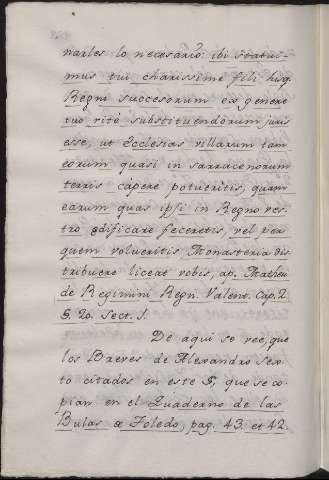 narles lo necesario: ibi statui-
mus tui charissime fili hisq.
Regni succesorum ex genere
tuo rité substituendorum juris
esse, ut Ecclesias villarum tam
eorum quasi in sarracenorum
terris cápere potueritis, quam
earum quas ipsi in Regno ves-
tro edificare feceretis, vel per
quem volueritis Monasteria dis
tribuere liceat vobis, ap. Matheu
de Regimini Regn. Valent. Cap. 2
§. 2o. Sect. 1.
De aqui se vee, que
los Breves de Alexandro Sex-
to citados en este §, que se co-
pian en el Quaderno de las
Bulas de Toledo, pag. 43. et 42.